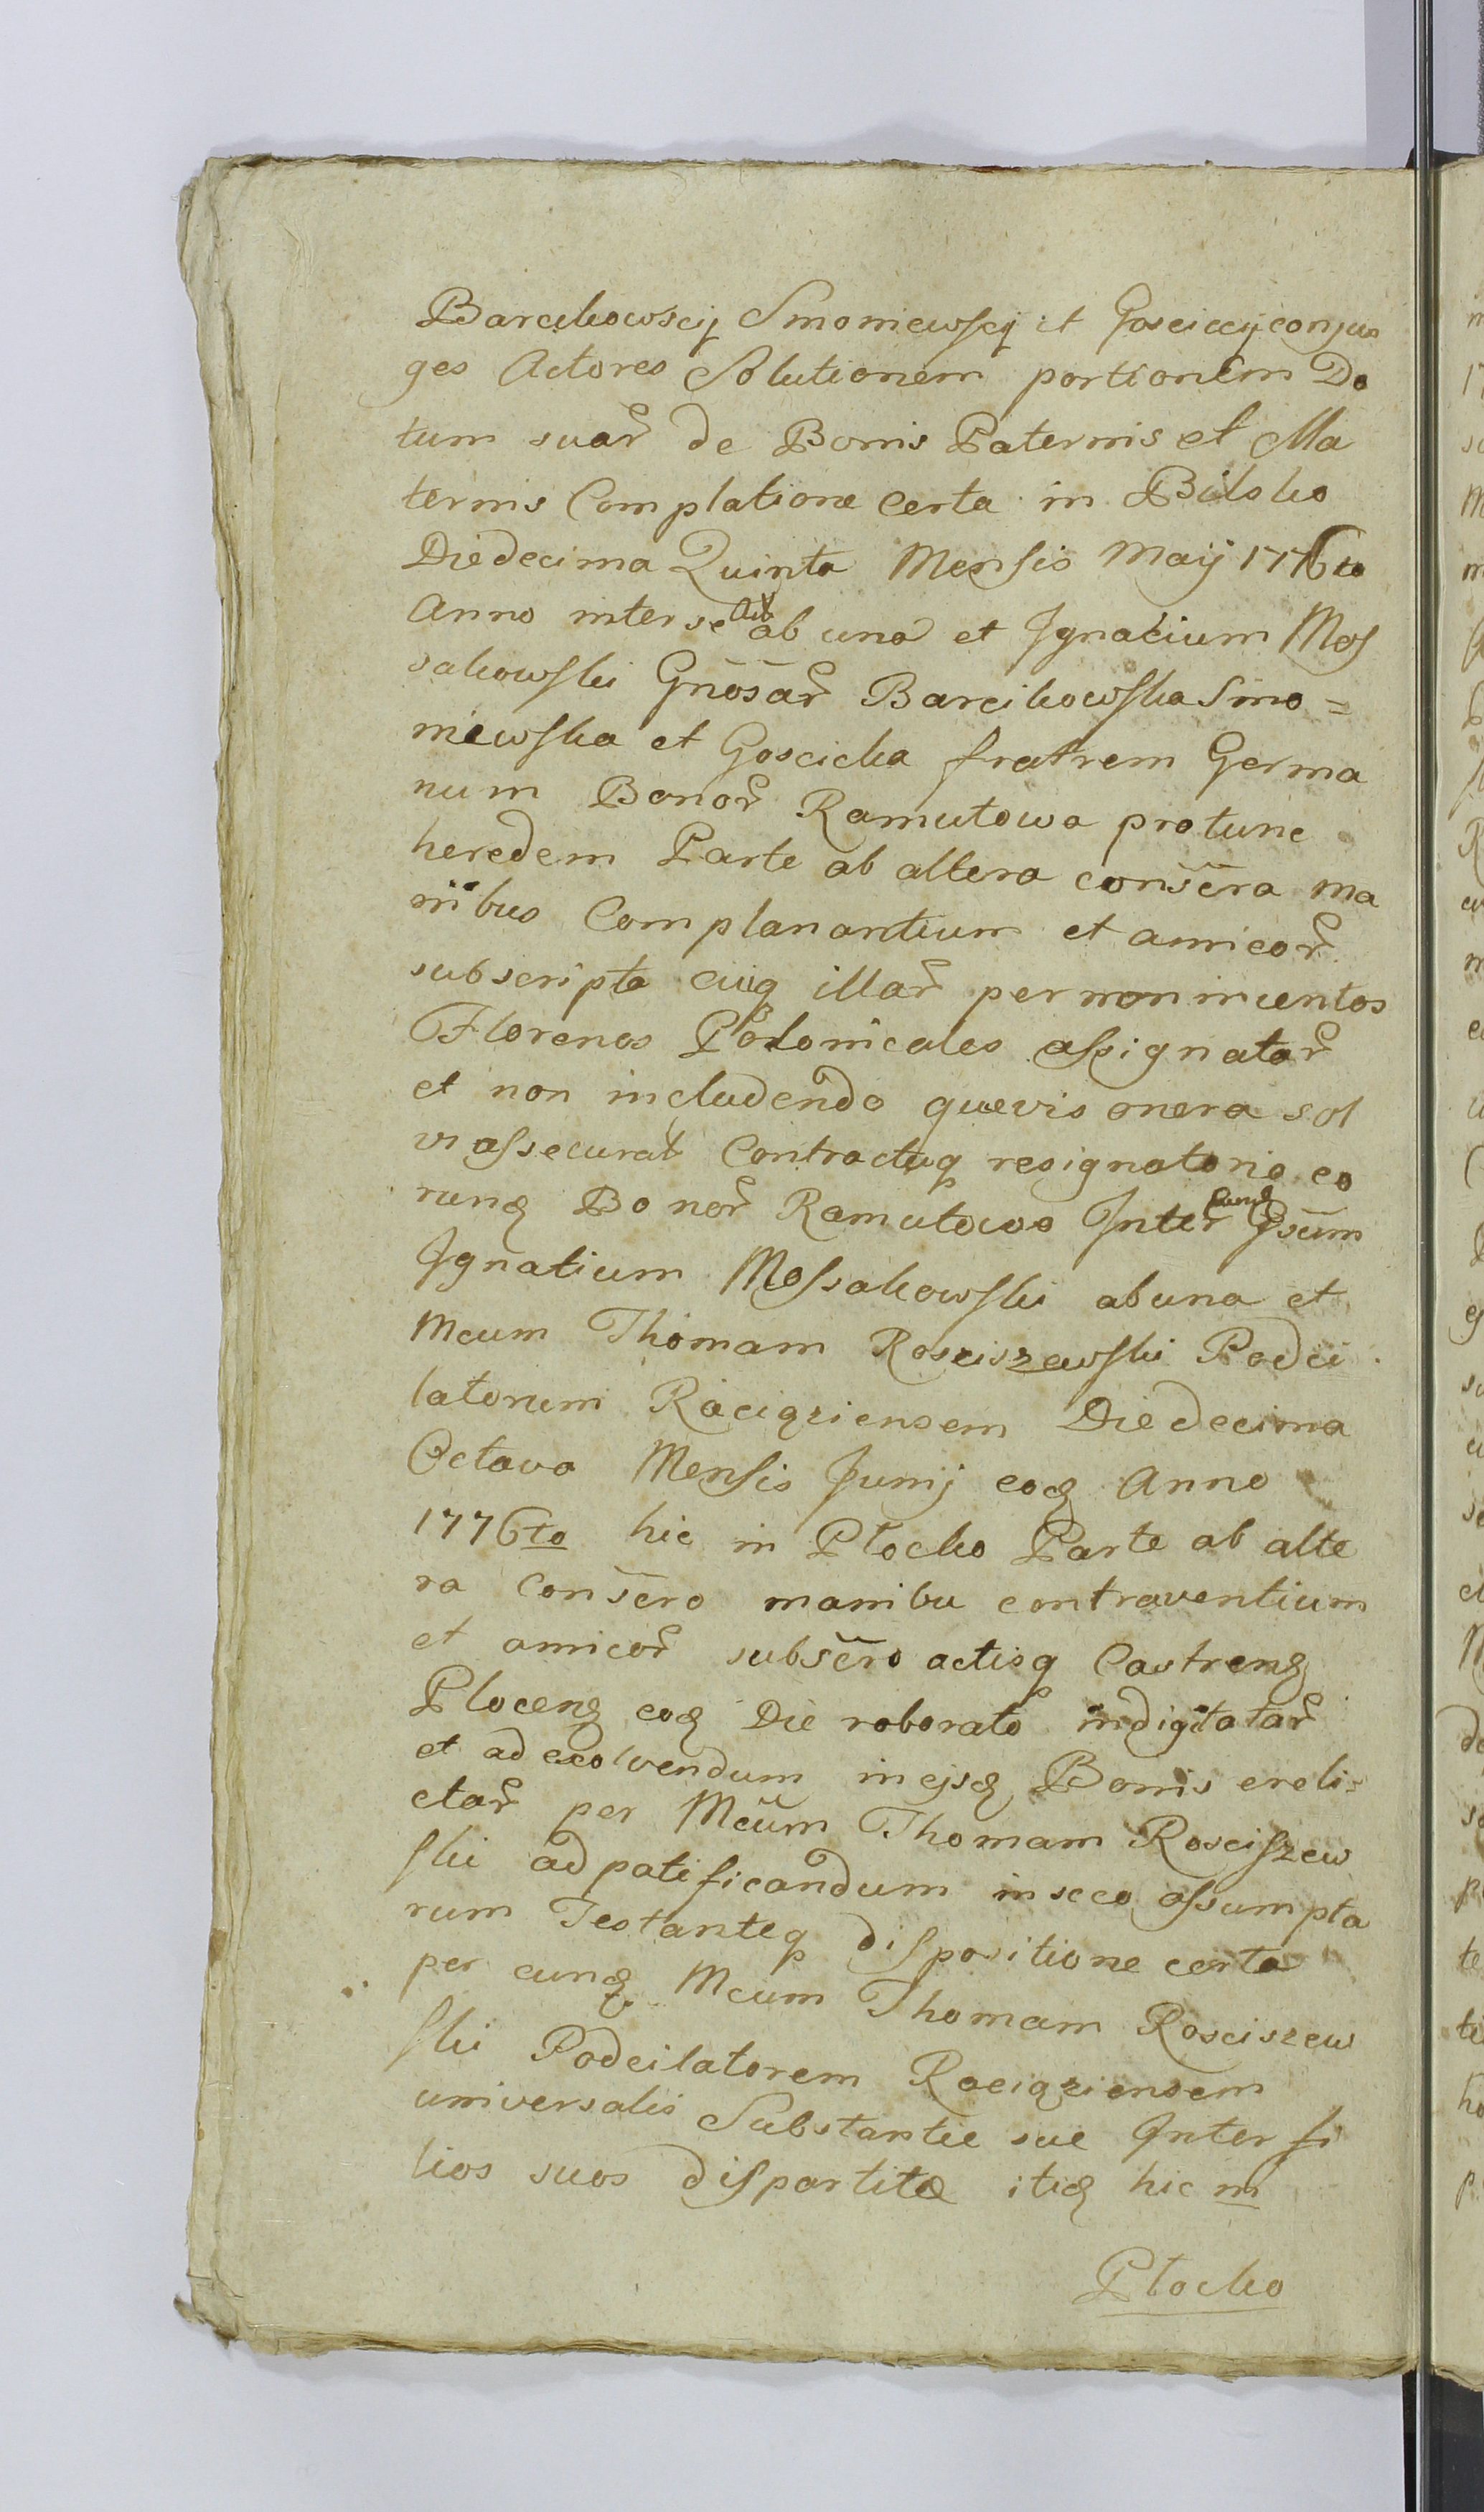 Barcikowscij Smoniewscij et Gosciccij conju
ges Actores Solutionem portionem Do
tum suar de Bonis Paternis et Ma
ternis Complatione certa in Bilsko
Die decima Quinta Mensis Maij 1776to
Anno inter se Act ab una et Ignatium Mos
sakowski Gnosar Barcikowska Smo=
niewska et Goscicka fratrem Germa
num Bonor Ramutowo protunc
heredem Parte ab altera conscra ma
nibus Complanantium et amicor
subscripta cuiq illar per noningentos
Florenos Polonicales assignatar
et non includendo quevis onera sol
vi assecurat Contractuq resignatorio eo
rund Bonor Ramutowo Inter eund Gsum
Ignatium Mossakowski ab una et
Mcum Thomam Rosciszewski Podci
latorem Raciąziensem Die decima
Octava Mensis Junij eod Anno
1776to hic in Płocko Parte ab alte
ra Conscro manibu contraventium
et amicor subscro actisq Castrens
Plocens eod Die roborato indigitatar
et ad exolvendum in ejsd Bonis ereli=
ctar per Mcum Thomam Rosciszew
ski ad patificandum in seco assumpta
rum Testanteq dispositione certa
per eund Mcum Thomam Rosciszew
ski Podcilatorem Raciąziensem
universalis Substantie sue Inter fi
lios suos dispartitæ itid hic in
Płocko